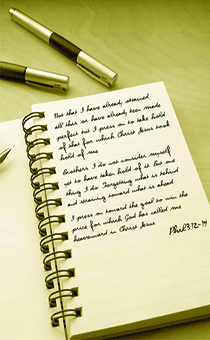 Not that I have already obtained
all this or have already been made
perfect but I press on to take hold
of that for which Christ Jesus took
hold of me
Brothers I do not consider myself
yet to have taken hold of it But one
thing I do Forgetting what is behind
and straining toward what is ahead
I press on toward the goal to win the
prize for which God has called me
heavenward in Christ Jesus
Phil 3:12-14